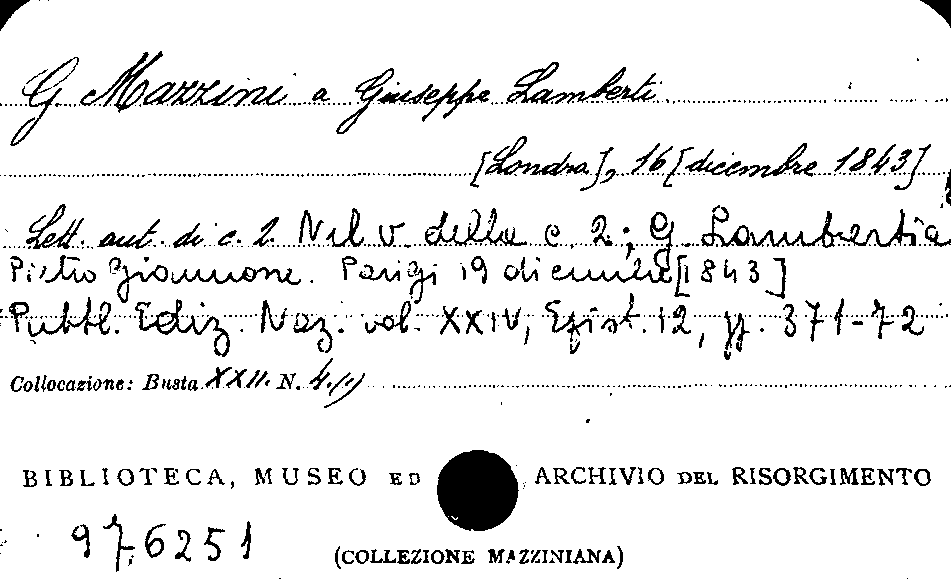 G. Mazzini a Giuseppe Lamberti
[Londra], 16 [dicembre 1843]
Lett. aut. di c. 2. Nel v. della c. 2; G. Lamberti a
Pietro Giannone. Parigi 19 dicembre [1843]
Pubbl. Ediz. Naz. vol. XXIV, Epist. 12, pp. 371-72
Collocazione: Busta XXII. N. 4.(1)
BIBLIOTECA, MUSEO ED ARCHIVIO DEL RISORGIMENTO
976251
(COLLEZIONE MAZZINIANA)